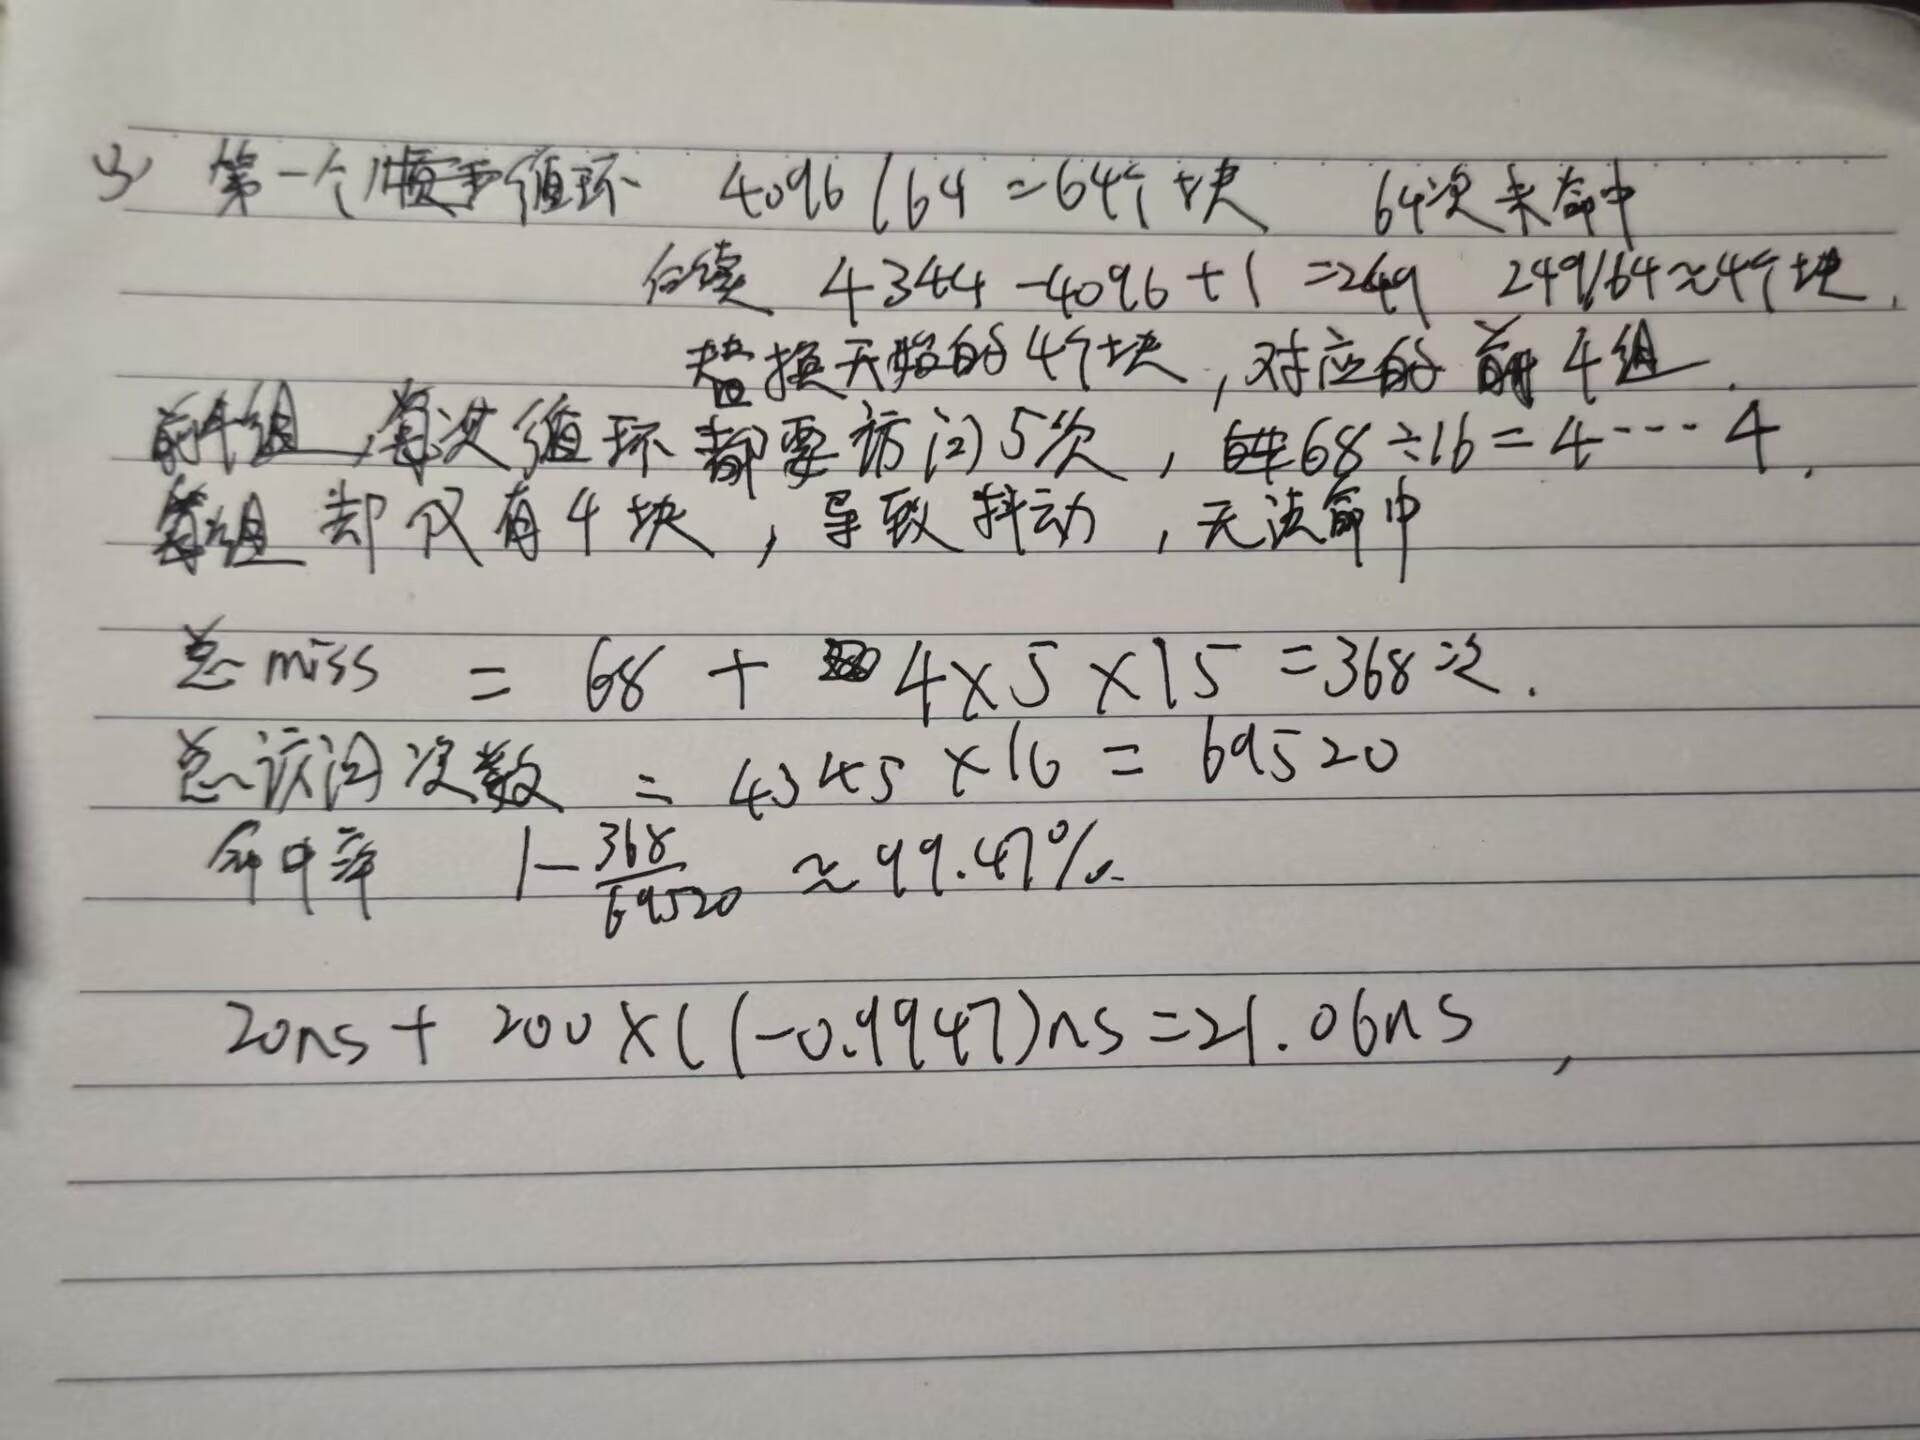 第一个顺序循环 4096/64=64个块 64次未命中
后续 4344-4096+1=249 249/64≈4个块.
替换开始的4个块,对应的前4组.
前4组,每次循环都要访问5次, 68÷16=4…4.
每组却仅有4块,导致抖动,无法命中
总miss = 68 + 4×5×15=368次.
总访问次数 = 4345×16 = 69520
命中率 1-368/69520 ≈99.47%.
20ns + 200×(1-0.9947)ns=21.06ns,